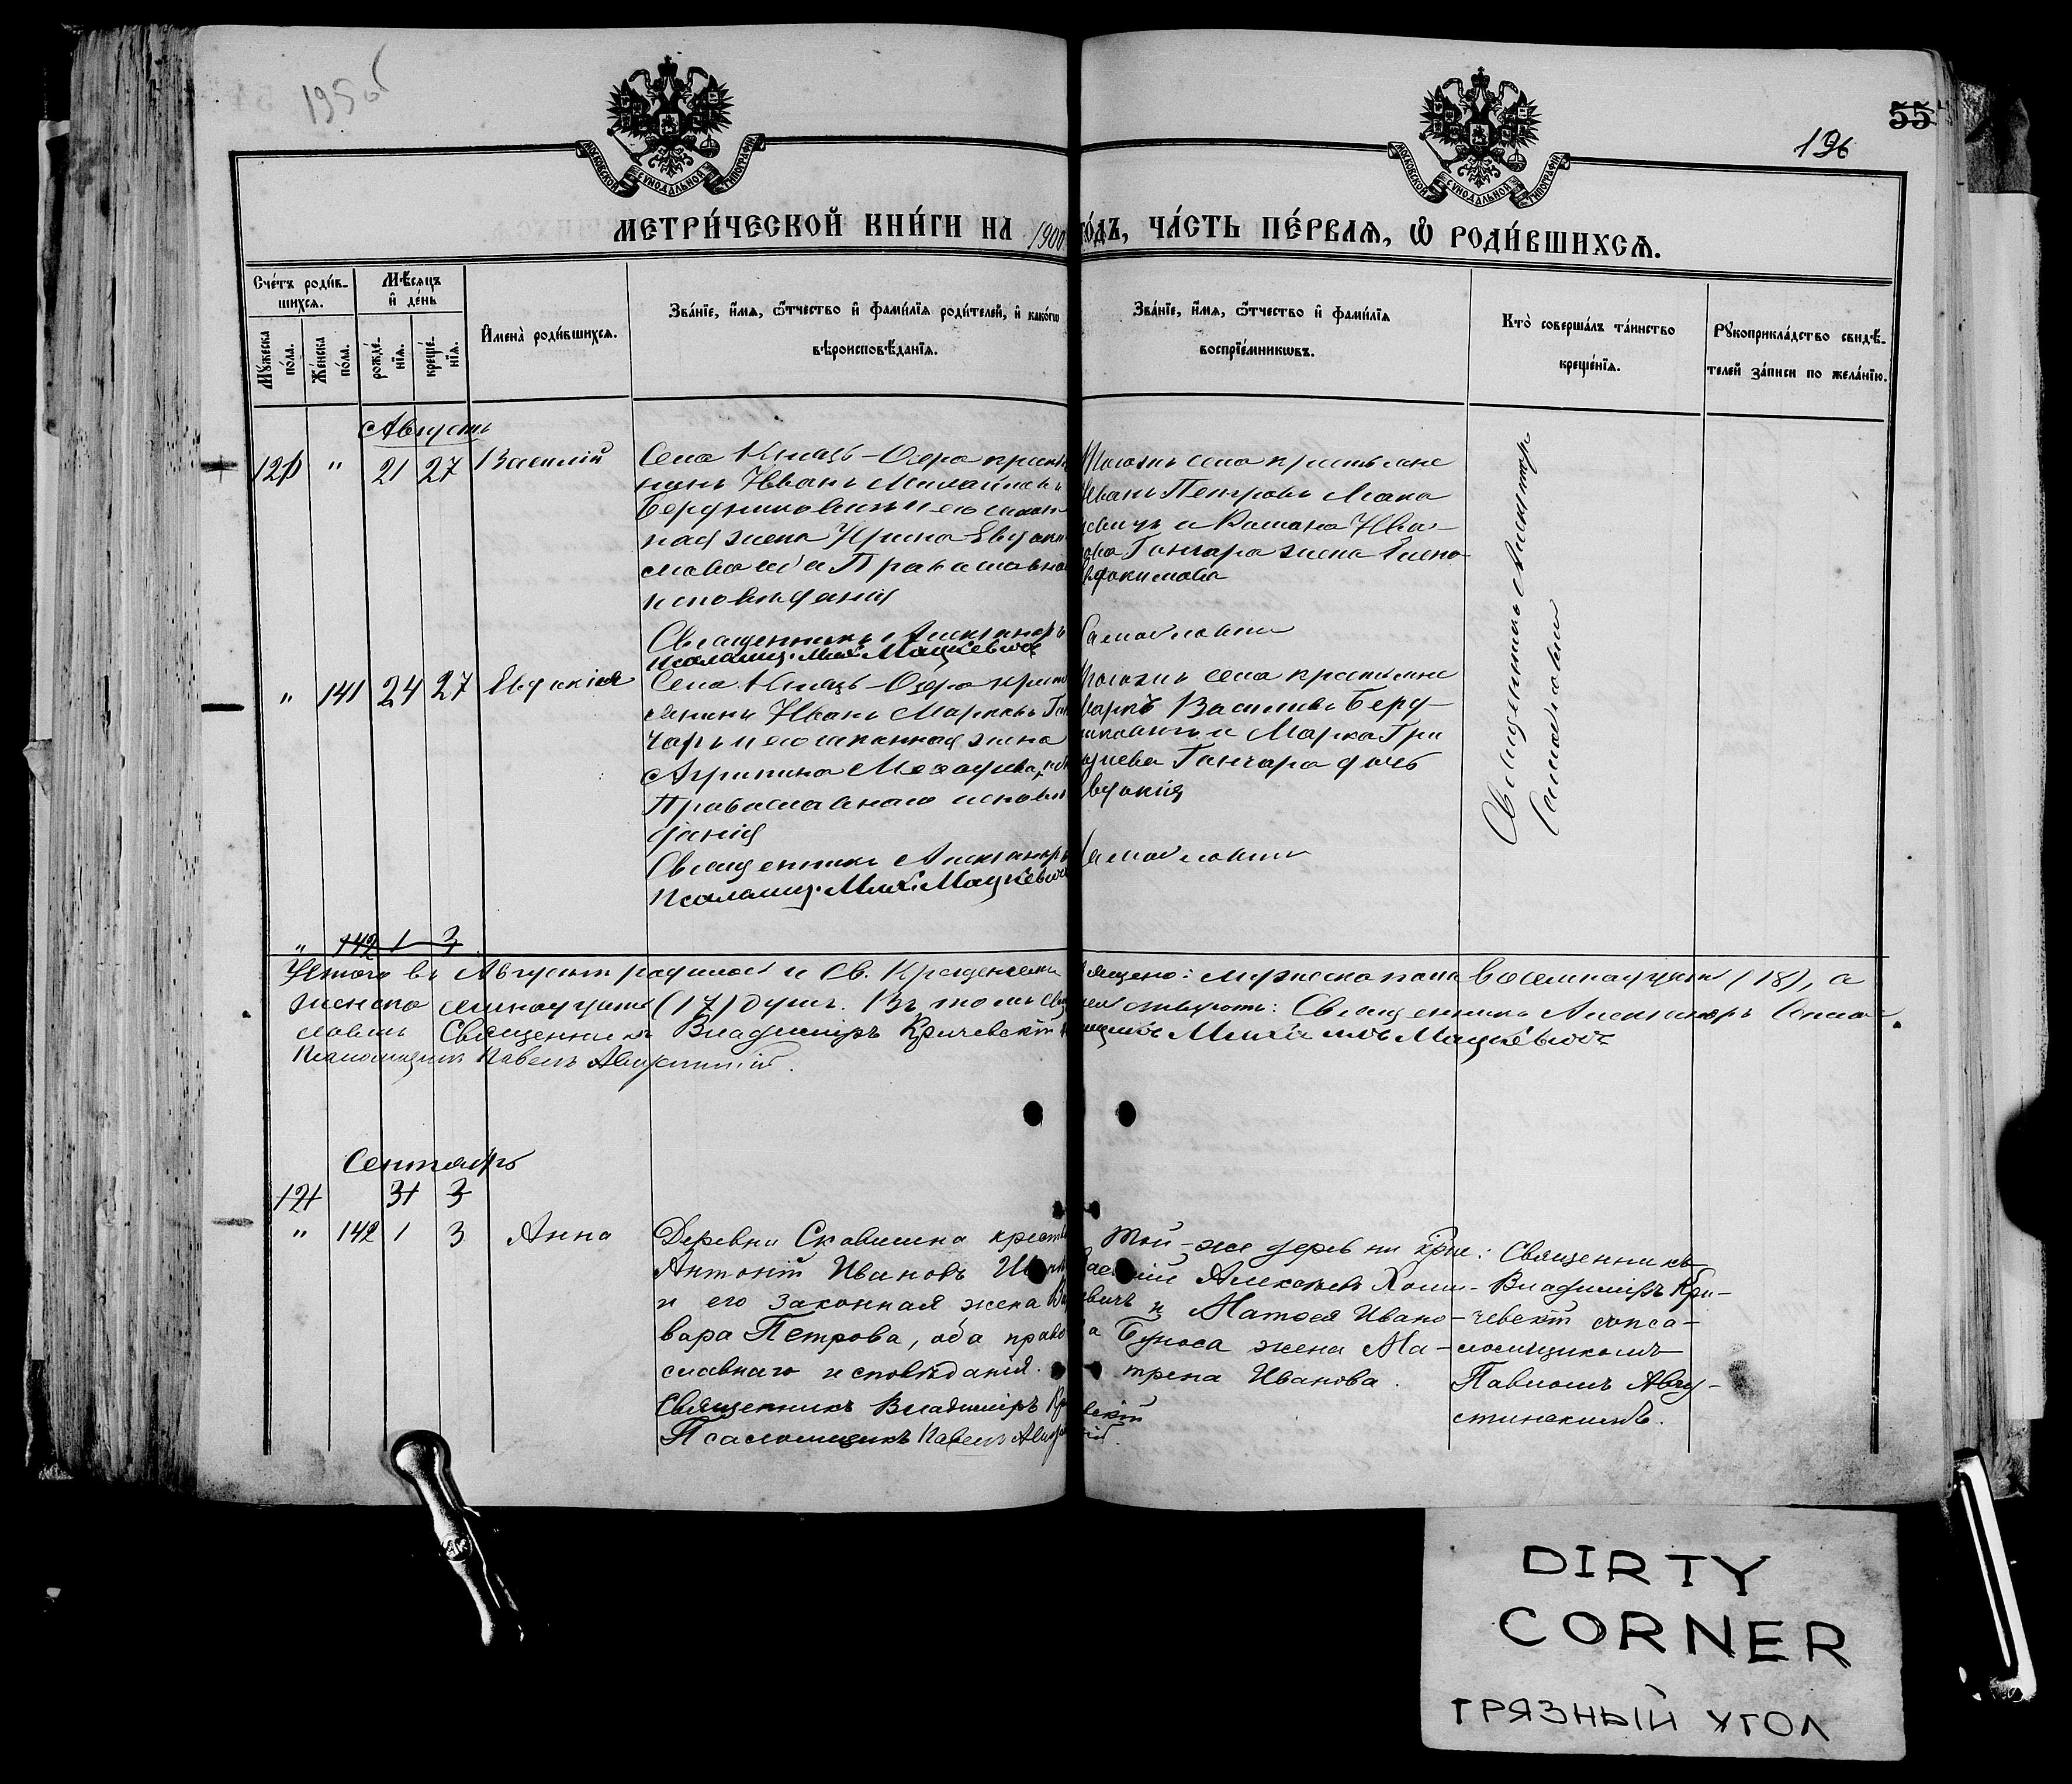 195об
196
55
МОСКОВСКОЙ СѴНОДАЛЬНОЙ ТИПОГРАФІИ
МОСКОВСКОЙ СѴНОДАЛЬНОЙ ТИПОГРАФІИ
МЕТРИ́ЧЕСКОЙ КНИ́ГИ НА 1900 ГО́ДЪ, ЧА́СТЬ ПЕ́РВАЯ, Ѡ҆ РОДИ́ВШИХСѦ.
Сче́тъ роди́в-
шихся.
Мѣ́сяцъ
и҆ де́нь
Мꙋ́жеска по́ла.
Же́нска по́ла.
рожде́-нїѧ.
креще́-нїѧ.
И҆мена̀ роди́вшихсѧ.
Зва́нїе, и҆́мѧ, ѻ҆́тчество и҆ фами́лїѧ роди́телей, и҆ како́гѡ
вѣроисповѣ́данїѧ.
Зва́нїе, и҆́мѧ, ѻ҆́тчество и҆ фами́лїѧ
воспрїе́мникѡвъ.
Кто̀ соверша́лъ та́инство
креще́нїѧ.
Рꙋкоприкла́дство свидѣ́-
телей за́писи по жела́нїю.
Августъ
120 " 21 27 Василій
Села Князь-Озера крестья
нинъ Иванъ Михайловъ
и его закон
ная жена Ирина Евдоки
мова оба Православнаго
исповѣданія
Священникъ Александръ Самойловичъ
Псаломщ. Мих. Мацкевичъ
Тогожъ села крестьяне
Иванъ Петровъ Мака
ревичъ и Романа Ива-
нова Ганчара жена Елена
Евдокимова
Священникъ Александръ
Самойловичъ
" 141 24 27 Евдокія
Села Князь-Озера кресть
янинъ Иванъ Марковъ Ган
чаръ и его законная жена
Агрипина Меѳодіева, оба
Православнаго исповѣ
данія
Священникъ Александръ Самойловичъ
Псаломщ. Мих. Мацкевичъ
Тогожъ села крестьяне
Маркъ Васильевъ Берд-
никовичъ и Марка Гри
горьева Ганчара дочь
Евдокія
" 142 1 3
Итого въ Августѣ родилось и Св. Крещеніемъ просвящено: мужеска пола восемнадцать (18), а
женска семнадцать (17) душъ. Въ томъ свидѣтельствуютъ: Священникъ Александръ Самой-
ловичъ Священникъ Владиміръ Кричевскій Псаломщикъ Михаилъ Мацкевичъ
Псаломщикъ Павелъ Августинскій.
Сентябрь
121 31 3
" 142 1 3 Анна
Деревни крестья
Антоній Ивановъ
и его законная жена Вар
вара Петрова, оба право
славнаго исповѣданія.
Священникъ Владиміръ Кричевскій
Псаломщикъ Павелъ Августинскій.
Той-же деревни крес:
Василій Алексѣевъ
и Матѳея Ивано-
ва жена Ма-
трена Иванова.
Священникъ
Владиміръ Кри-
чевскій съ пса-
ломщикомъ
Павломъ Авгу-
стинскимъ.
DIRTY
CORNER
ГРЯЗНЫЙ УГОЛ